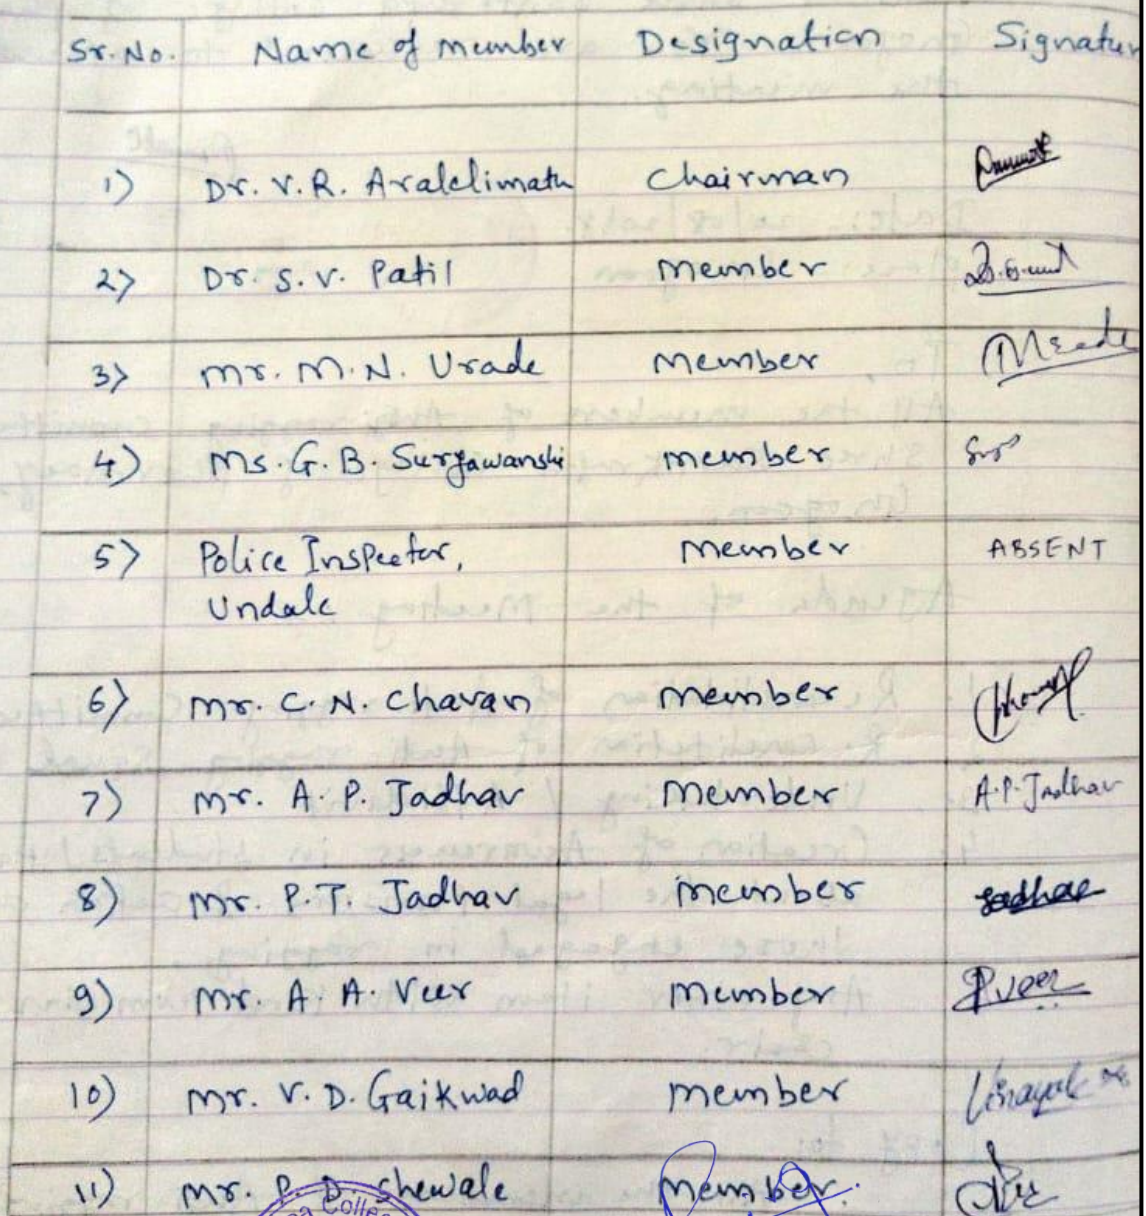 Sr. No. Name of member Designation Signatur
1) Dr. V. R. Aralelimath Chairman
2) Dr. S. V. Patil Member
3) Mr. M. N. Urade Member
4) Ms. G. B. Suryawanshi Member
5) Police Inspector, Member ABSENT
Undale
6) Mr. C. N. Chavan Member
7) Mr. A. P. Jadhav Member A.P. Jadhav
8) Mr. P. T. Jadhav Member Jadhav
9) Mr. A A. Veer Member
10) Mr. V. D. Gaikwad Member Vinayak
11) Mr. P. D. Shewale Member